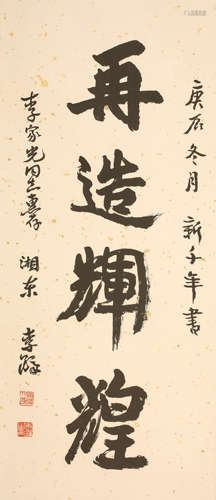 庚辰冬月 新千年書
再造輝煌
李家光同志惠存 湘东 李